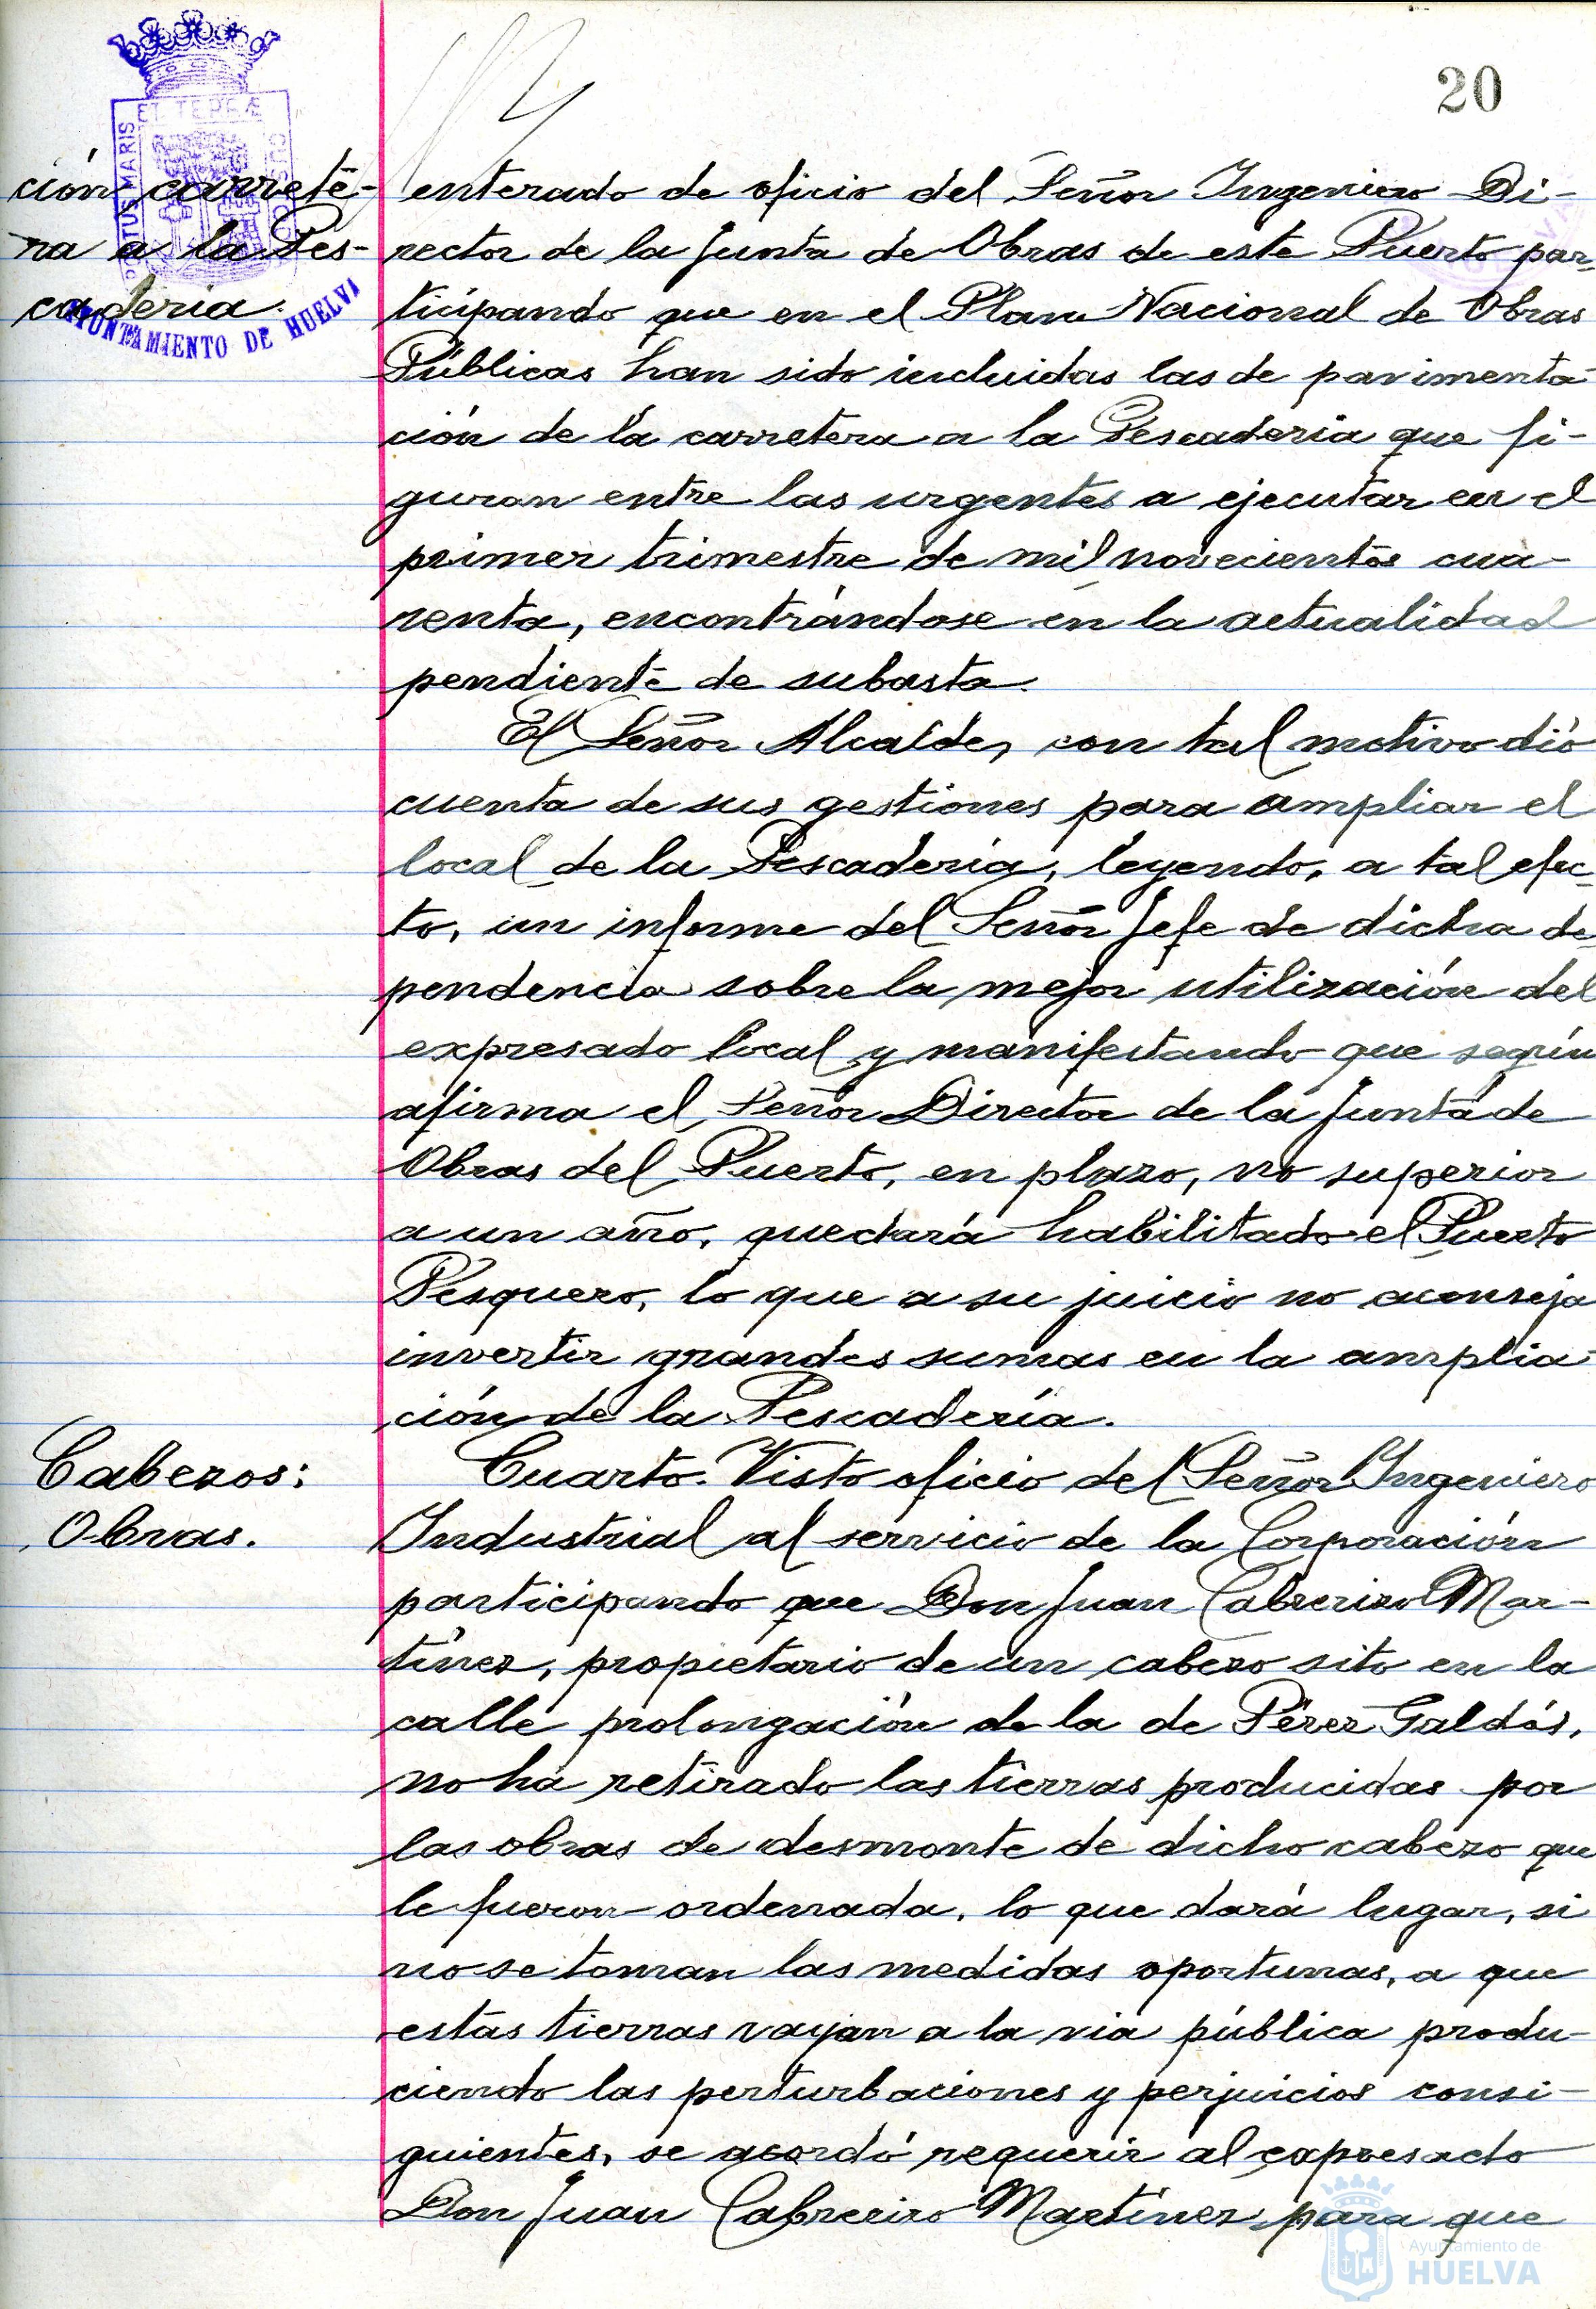 20
PORTUS MARIS ET TERRÆ CUSTODIA
AYUNTAMIENTO DE HUELVA
ción carrete-
ra a la Pes-
cadería.
enterado de oficio del Señor Ingeniero Di-
rector de la Junta de Obras de este Puerto par-
ticipando que en el Plan Nacional de Obras
Públicas han sido incluidas las de pavimenta-
ción de la carretera a la Pescadería que fi-
guran entre las urgentes a ejecutar en el
primer trimestre de mil novecientos cua-
renta, encontrándose en la actualidad
pendiente de subasta.
El Señor Alcalde, con tal motivo dió
cuenta de sus gestiones para ampliar el
local de la Pescadería, leyendo, a tal efec-
to, un informe del Señor Jefe de dicha de-
pendencia sobre la mejor utilización del
expresado local y manifestando que según
afirma el Señor Director de la Junta de
Obras del Puerto, en plazo, no superior
a un año, quedará habilitado el Puerto
Pesquero, lo que a su juicio no aconseja
invertir grandes sumas en la amplia-
ción de la Pescadería.
Cabezos:
Obras.
Cuarto. Visto oficio del Señor Ingeniero
Industrial al servicio de la Corporación
participando que Don Juan Cabrerizo Mar-
tínez, propietario de un cabezo sito en la
calle prolongación de la de Pérez Galdós,
no ha retirado las tierras producidas por
las obras de desmonte de dicho cabezo que
le fueron ordenada, lo que dará lugar, si
no se toman las medidas oportunas, a que
estas tierras vayan a la vía pública produ-
ciendo las perturbaciones y perjuicios consi-
guientes, se acordó requerir al expresado
Don Juan Cabrerizo Martínez para que
Ayuntamiento de
HUELVA